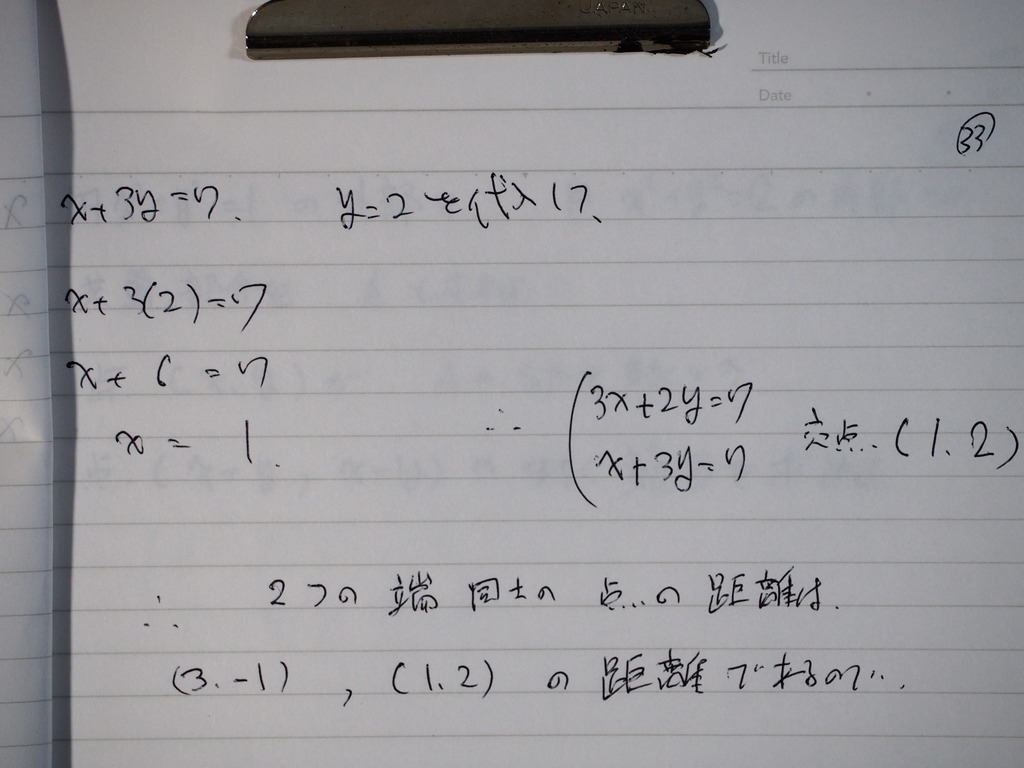 JAPAN
Title
Date
33
x+3y=7、 y=2を代入して、
x+3(2)=7
x+6=7
x=1.
∴ 3x+2y=7
x+3y=7 交点.(1.2)
∴ 2つの端同士の点の距離は.
(3.-1) , (1.2) の距離であるので、